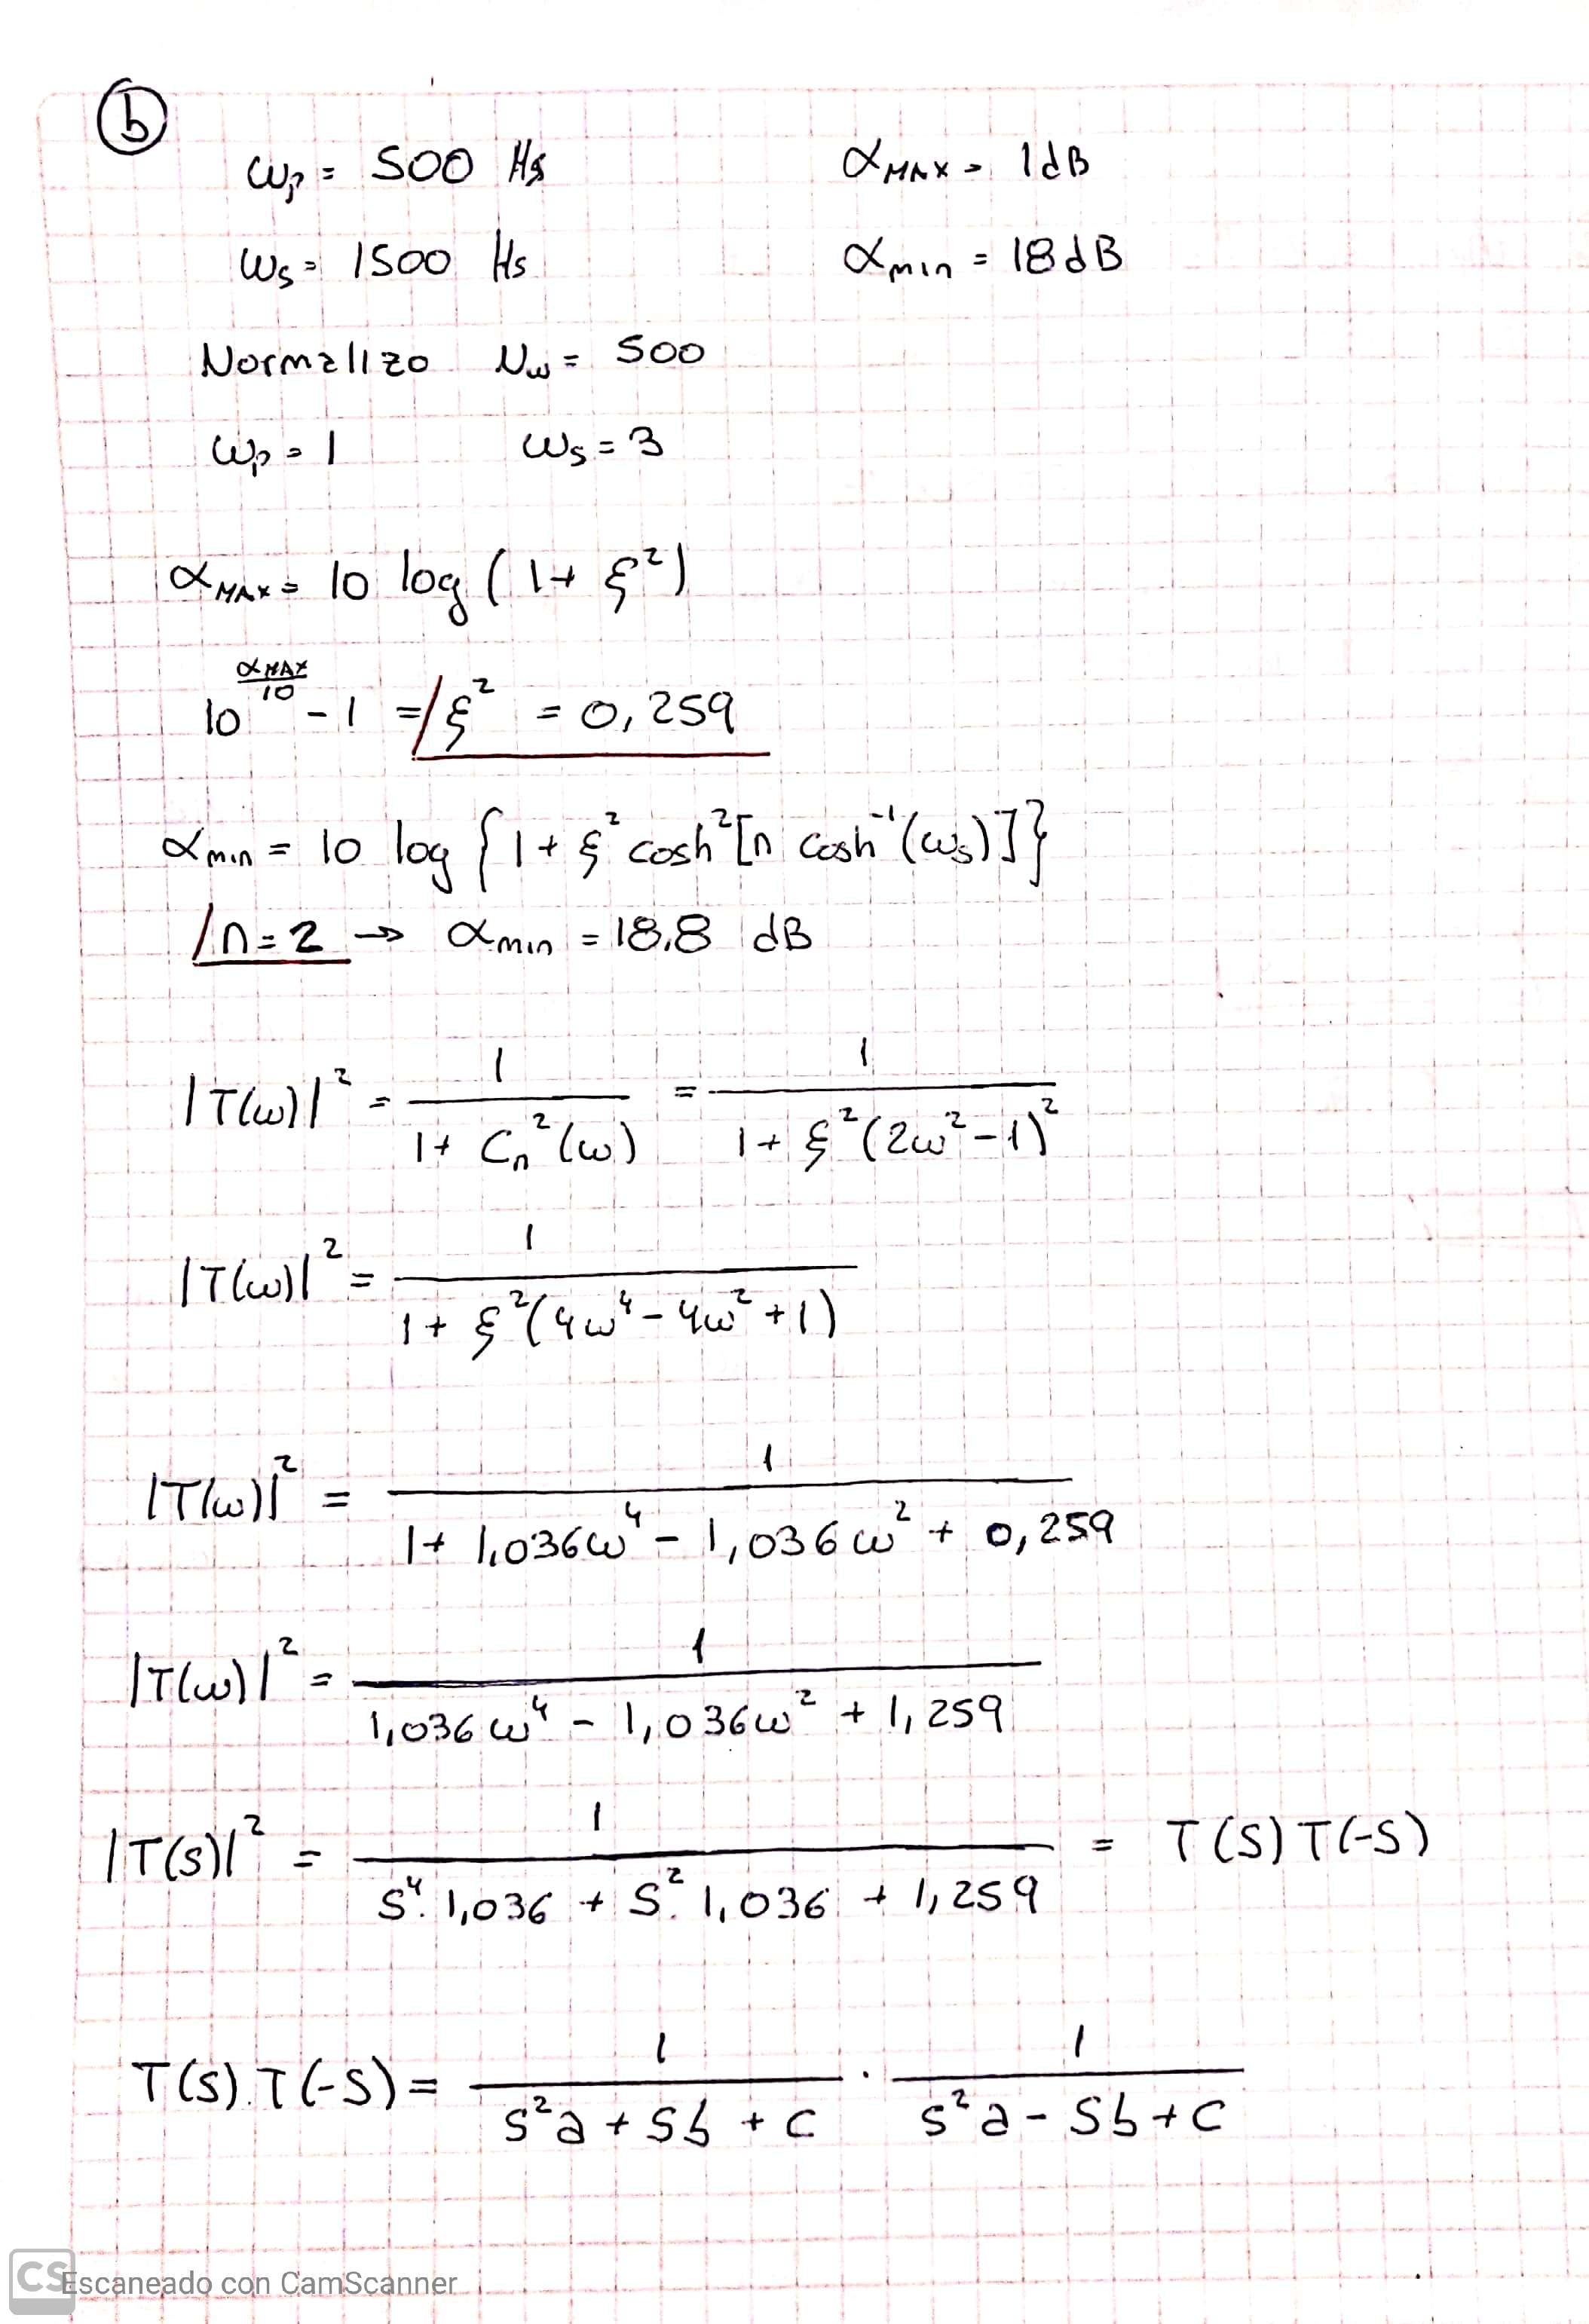 b
ωp = 500 Hz αMAX = 1dB
ωs = 1500 Hz αmin = 18dB
Normalizo Nω = 500
ωp = 1 ωs = 3
αMAX = 10 log (1 + ξ²)
10^(αMAX/10) - 1 = ξ² = 0,259
αmin = 10 log {1 + ξ² cosh² [n cosh⁻¹(ωs)]}
n = 2 → αmin = 18,8 dB
|T(ω)|² = 1 / (1 + Cn²(ω)) = 1 / (1 + ξ²(2ω² - 1)²)
|T(ω)|² = 1 / (1 + ξ²(4ω⁴ - 4ω² + 1))
|T(ω)|² = 1 / (1 + 1,036ω⁴ - 1,036ω² + 0,259)
|T(ω)|² = 1 / (1,036ω⁴ - 1,036ω² + 1,259)
|T(s)|² = 1 / (s⁴. 1,036 + s². 1,036 + 1,259) = T(s) T(-s)
T(s).T(-s) = 1 / (s²a + sb + c) . 1 / (s²a - sb + c)
CS Escaneado con CamScanner